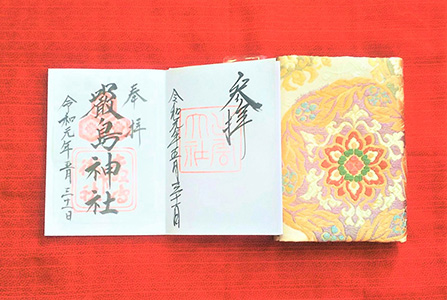 奉拝
嚴島神社
令和元年五月三十一日
参拝
令和元年五月三十一日